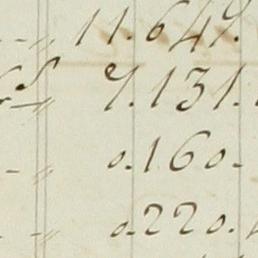 11.649.
7.131.
0.160.
0.220.